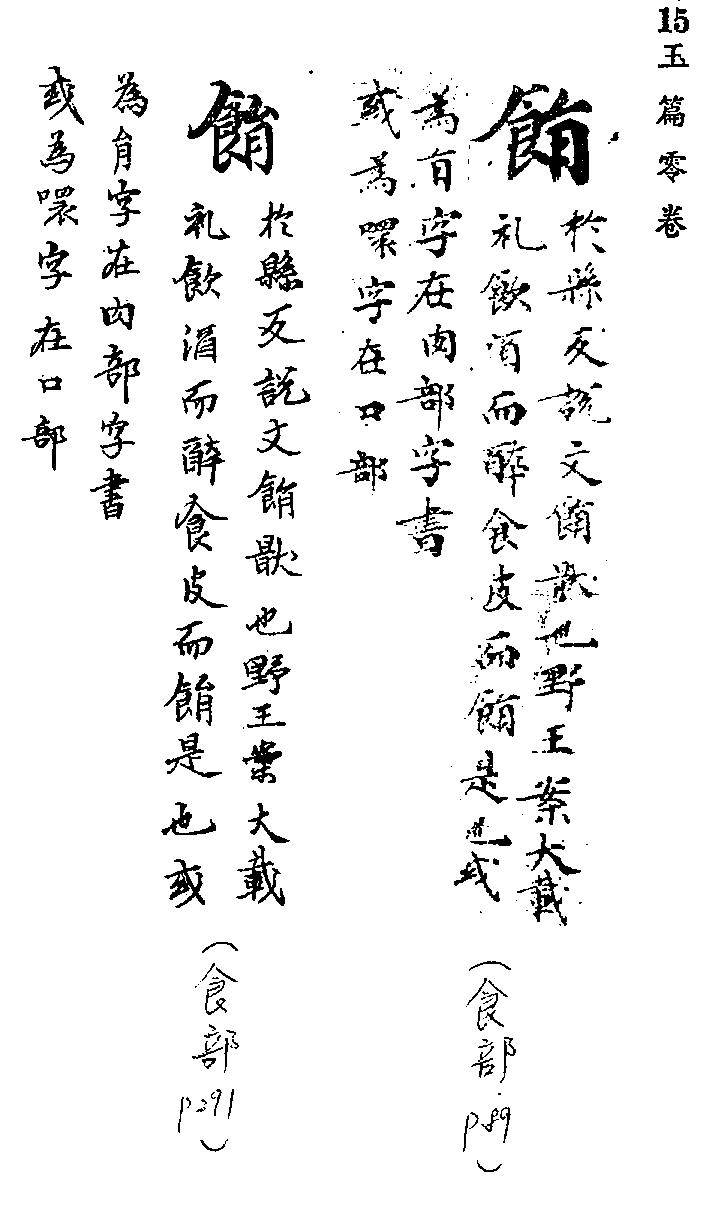 15玉篇零卷
䬼
於縣反說文䬼猒也野王案大戴
礼飲酒而醉食皮而䬼是也或
為肙字在肉部字書
或為噮字在口部
(食部
p.89)
䬼
於縣反說文䬼猒也野王案大戴
礼飲酒而醉食皮而䬼是也或
為肙字在肉部字書
或為噮字在口部
(食部
p291)